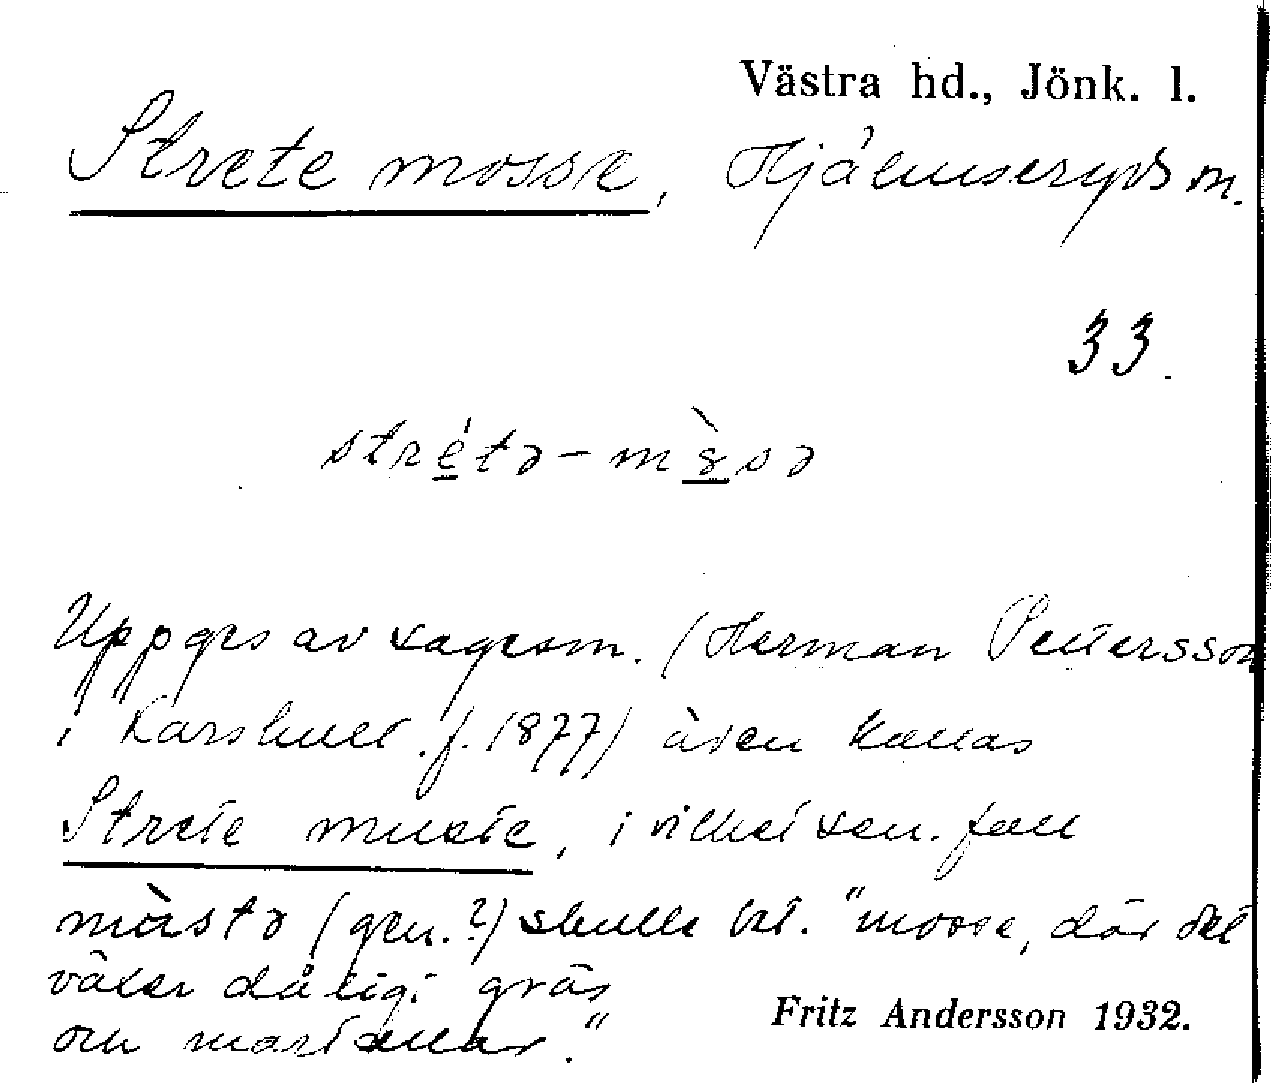 Västra hd., Jönk. l.
Strete mosse, Hjälmseryds sn.
33.
stré̱tə-mè̱sə
Uppges av sagesm. (Herman Pettersson
i Karshult. f. 1877) även kallas
Strete, i vilket sen. fall
màstə (gen.?) skulle bet. "mosse, där det
växer dåligt gräs
och martallar."
Fritz Andersson 1932.